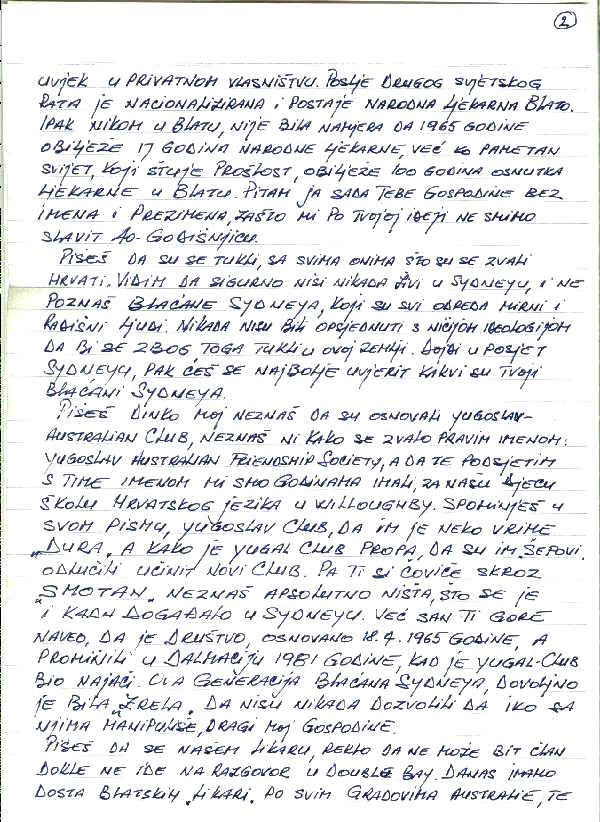 2
UVIJEK U PRIVATNOM VLASNIŠTVU. POSLJE DRUGOG SVJETSKOG
RATA JE NACIONALIZIRANA I POSTAJE NARODNA LJEKARNA BLATO.
IPAK NIKOM U BLATU, NIJE BILA NAMJERA DA 1965 GODINE
OBILJEŽE 17 GODINA NARODNE LJEKARNE, VEĆ KO PAMETAN
SVIJET, KOJI ŠTUJE PROŠLOST, OBILJEŽE 100 GODINA OSNUTKA
LJEKARNE U BLATU. PITAM JA SADA TEBE GOSPODINE BEZ
IMENA I PREZIMENA, ZAŠTO MI PO TVOJOJ IDEJI NE SMIMO
SLAVIT 40-GODIŠNJICU.
PIŠEŠ DA SU SE TUKLI, SA SVIMA ONIMA ŠTO SU SE ZVALI
HRVATI. VIDIM DA SIGURNO NISI NIKADA ŽIVI U SYDNEYU, I NE
POZNAŠ BLAĆANE SYDNEYA, KOJI SU SVI ODREDA MIRNI I
RADIŠNI LJUDI. NIKADA NISU BILI OPSJEDNUTI S NIČIJOM IDEOLOGIJOM
DA BI SE ZBOG TOGA TUKLI U OVOJ ZEMLJI. DOJDI U POSJET
SYDNEYU, PAK ĆEŠ SE NAJBOLJE UVJERIT KAKVI SU TVOJI
BLAĆANI SYDNEYA.
PIŠEŠ DINKO MOJ NEZNAŠ DA SU OSNOVALI YUGOSLAV-
AUSTRALIAN CLUB, NEZNAŠ NI KAKO SE ZVALO PRAVIM IMENOM:
YUGOSLAV AUSTRALIAN FRIENDSHIP SOCIETY, A DA TE PODSJETIM
S TIME IMENOM MI SMO GODINAMA IMALI, ZA NAŠU DJECU
ŠKOLU HRVATSKOG JEZIKA U WILLOUGHBY. SPOMINJEŠ U
SVOM PISMU, YUGOSLAV CLUB, DA IM JE NEKO VRIME
„DURA", A KAKO JE YUGAL CLUB PROPA, DA SU IM ŠEFOVI
ODLUČILI UČINIT NOVI CLUB. PA TI SI ČOVIČE SKROZ
„SMOTAN". NEZNAŠ APSOLUTNO NIŠTA, ŠTO SE JE
I KADU DOGAĐALO U SYDNEYU. VEĆ SAN TI GORE
NAVEO, DA JE DRUŠTVO, OSNOVANO 18.4.1965 GODINE, A
PROMINILI U DALMACIJU 1981 GODINE, KAD JE YUGAL-CLUB
BIO NAJAČI. OVA GENERACIJA BLAĆANA SYDNEYA, DOVOLJNO
JE BILA „ZRELA". DA NISU NIKADA DOZVOLILI DA IKO SA
NJIMA MANIPULIŠE, DRAGI MOJ GOSPODINE.
PIŠEŠ DA SE NAŠEM LIKARU, REKLO DA NE MOŽE BIT ČLAN
DOKLE NE IDE NA RAZGOVOR U DOUBLE BAY. DANAS IMAMO
DOSTA BLATSKIH „LIKARI". PO SVIM GRADOVIMA AUSTRALIE, TE